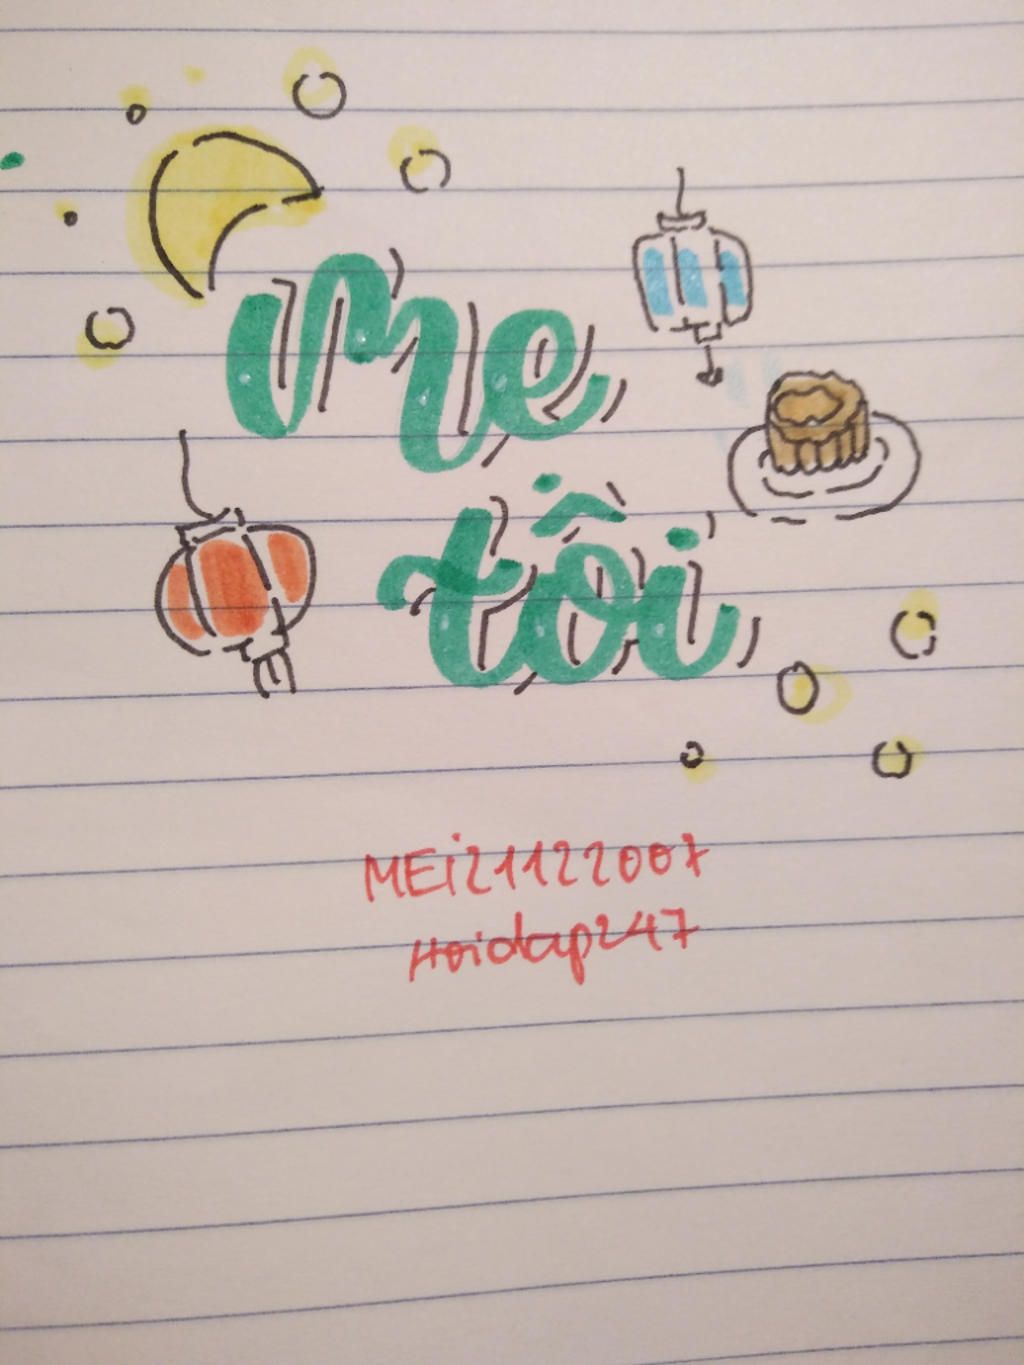 Mẹ
tôi
MEi21122007
Hoidap247